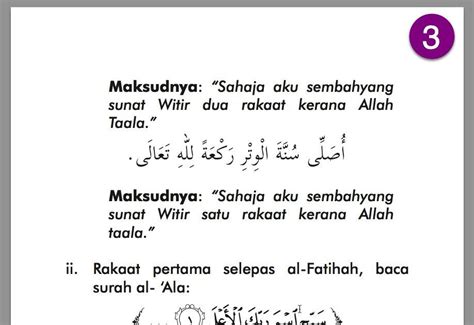 3
Maksudnya: “Sahaja aku sembahyang
sunat Witir dua rakaat kerana Allah
Taala.”
أُصَلِّى سُنَّةَ الْوِتْرِ رَكْعَةً لِلّٰهِ تَعَالَى.
Maksudnya: “Sahaja aku sembahyang
sunat Witir satu rakaat kerana Allah
taala.”
ii. Rakaat pertama selepas al-Fatihah, baca
surah al- ‘Ala:
سَبِّحِ اسْمَ رَبِّكَ الْأَعْلَى ١ ...